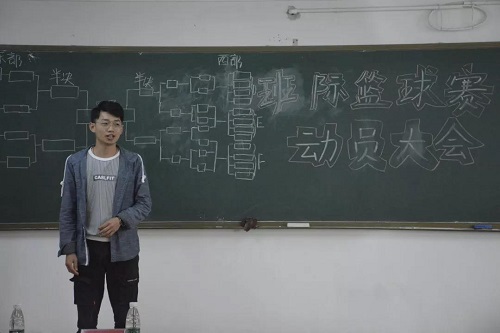 东部
半决
半决
西部
班际篮球赛
动员大会